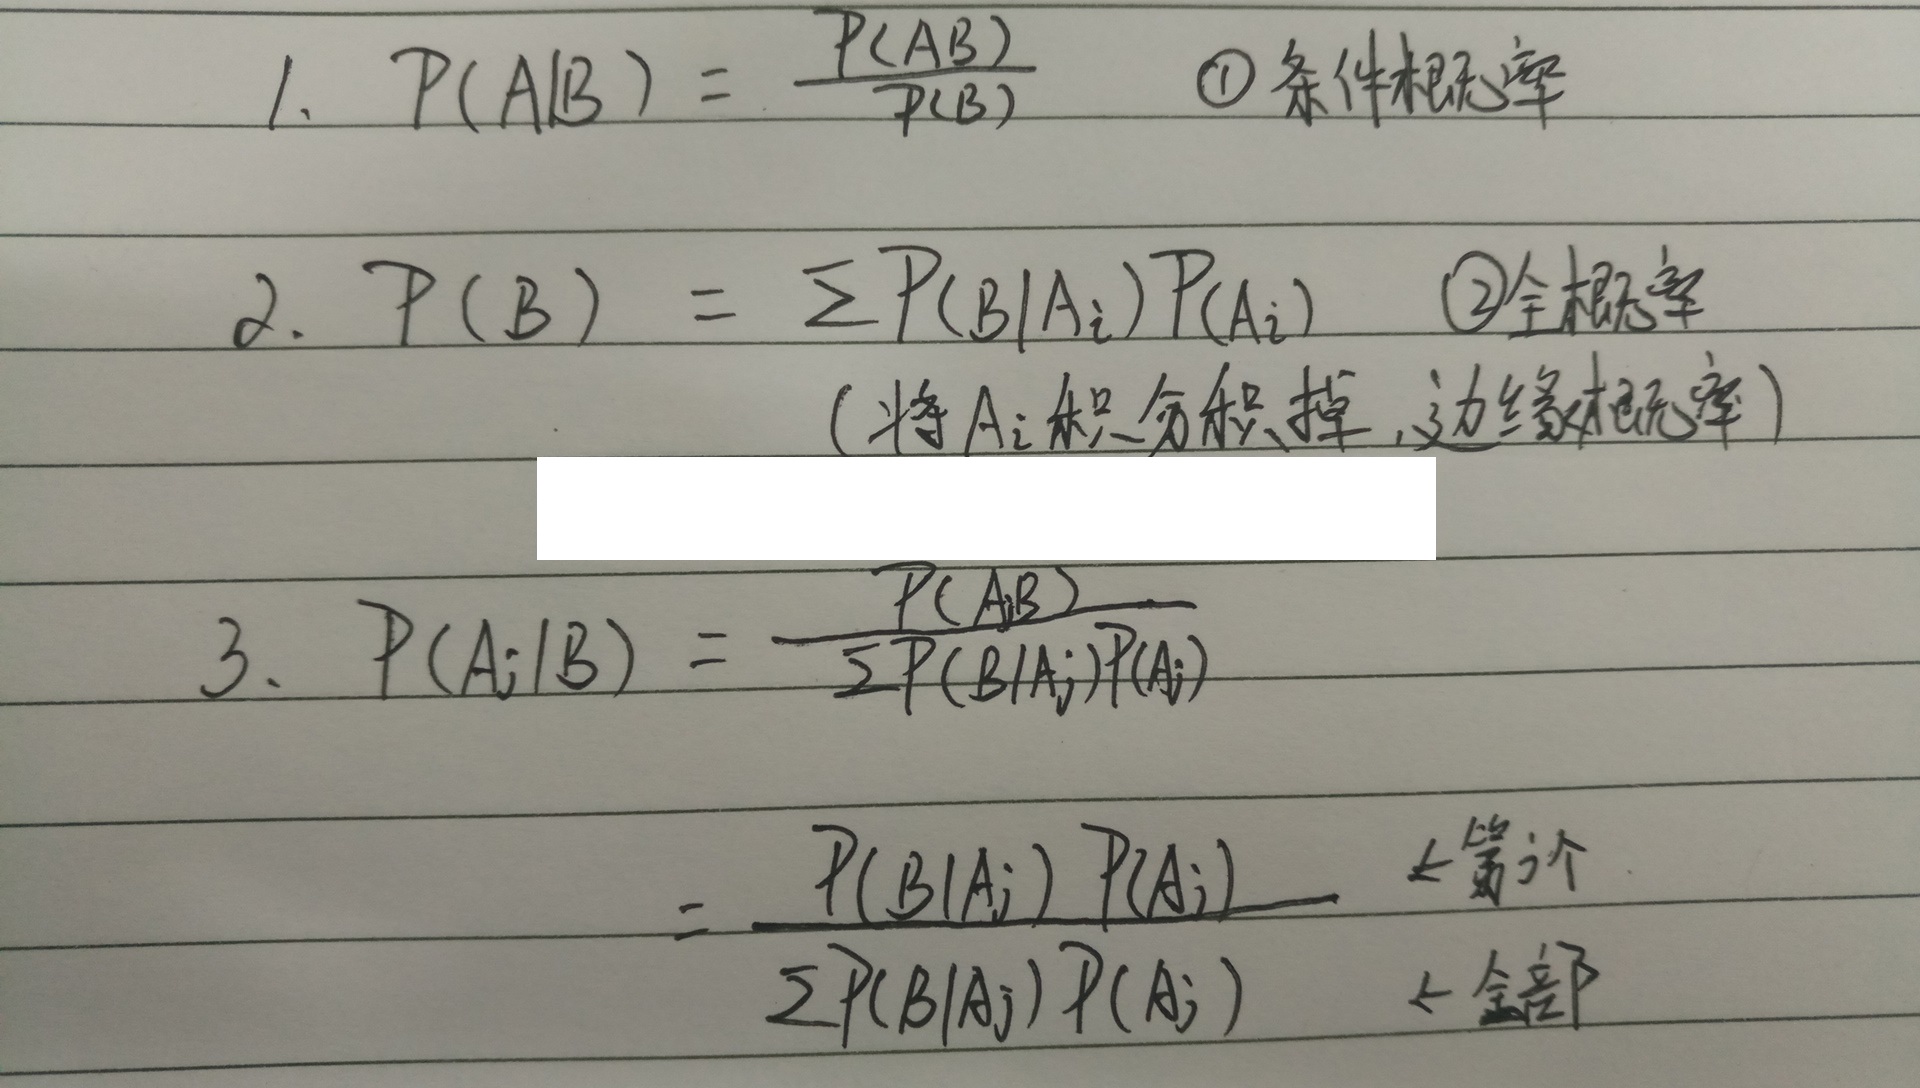 1. P(A|B) = P(AB) / P(B) ① 条件概率
2. P(B) = ΣP(B|Ai)P(Ai) ②全概率
(将Ai积分积掉,边缘概率)
3. P(Ai|B) = P(AiB) / ΣP(B|Aj)P(Aj)
= P(B|Ai) P(Ai) / ΣP(B|Aj) P(Aj)
←第i个
←全部